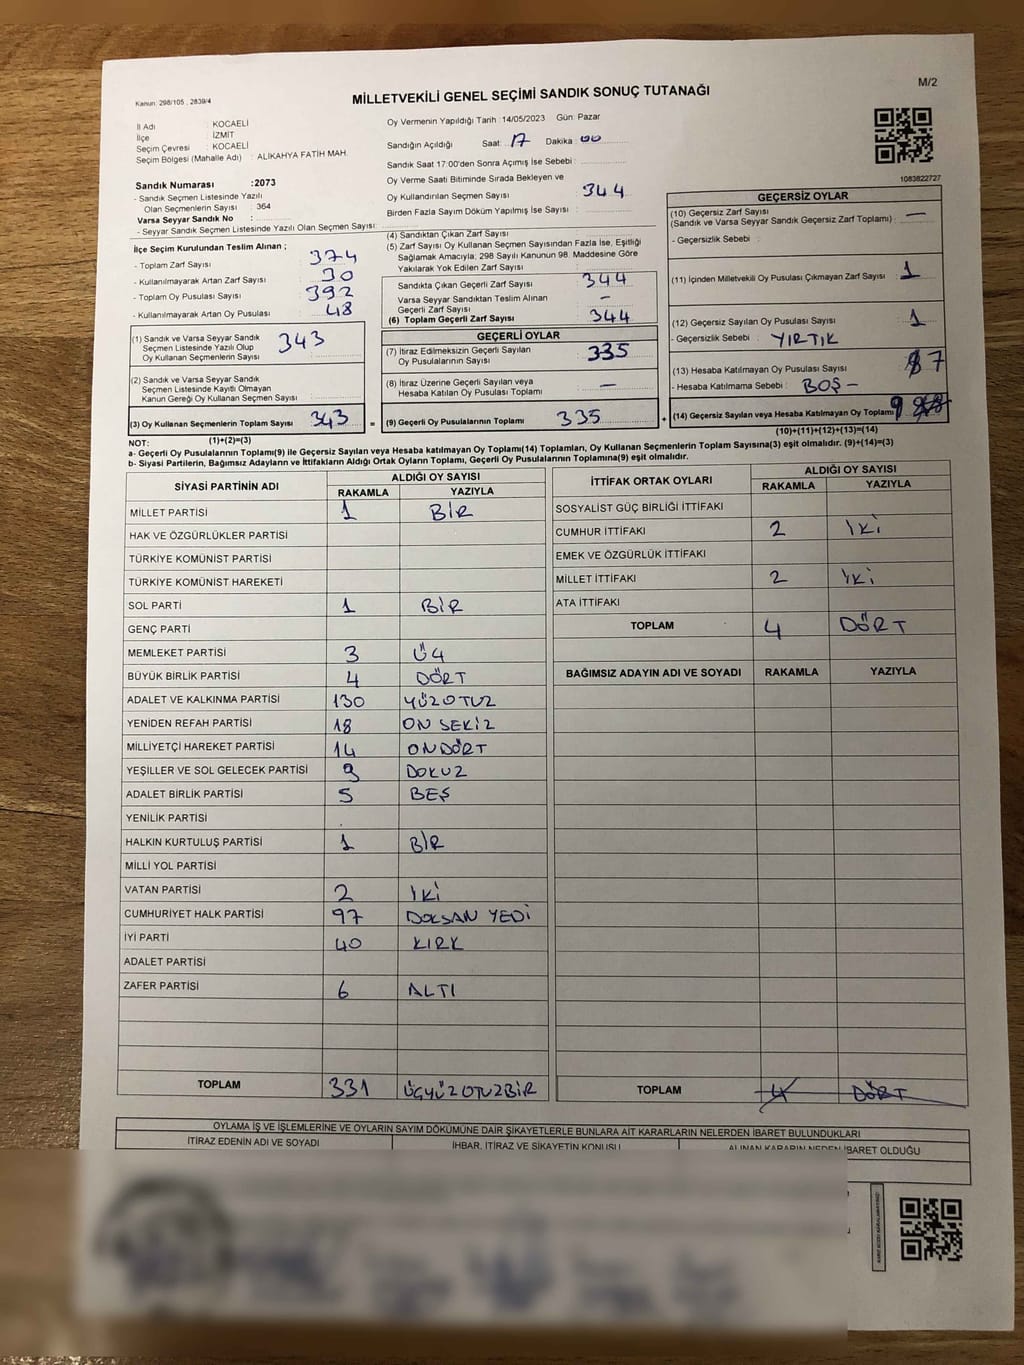 M/2
Kanun: 298/105 , 2839/4
MİLLETVEKİLİ GENEL SEÇİMİ SANDIK SONUÇ TUTANAĞI
İl Adı : KOCAELİ
İlçe : İZMİT
Seçim Çevresi : KOCAELİ
Seçim Bölgesi (Mahalle Adı) : ALİKAHYA FATİH MAH.
Sandık Numarası :2073
- Sandık Seçmen Listesinde Yazılı
Olan Seçmenlerin Sayısı : 364
Varsa Seyyar Sandık No :
- Seyyar Sandık Seçmen Listesinde Yazılı Olan Seçmen Sayısı:
Oy Vermenin Yapıldığı Tarih : 14/05/2023 Gün: Pazar
Sandığın Açıldığı Saat: 17 Dakika: 00
Sandık Saat 17:00'den Sonra Açımış İse Sebebi :
Oy Verme Saati Bitiminde Sırada Bekleyen ve
Oy Kullandırılan Seçmen Sayısı : 344
Birden Fazla Sayım Döküm Yapılmış İse Sayısı :
1083822727
İlçe Seçim Kurulundan Teslim Alınan ;
- Toplam Zarf Sayısı : 374
- Kullanılmayarak Artan Zarf Sayısı : 30
- Toplam Oy Pusulası Sayısı : 392
- Kullanılmayarak Artan Oy Pusulası : 48
(1) Sandık ve Varsa Seyyar Sandık
Seçmen Listesinde Yazılı Olup
Oy Kullanan Seçmenlerin Sayısı : 343
(2) Sandık ve Varsa Seyyar Sandık
Seçmen Listesinde Kayıtlı Olmayan
Kanun Gereği Oy Kullanan Seçmen Sayısı :
(3) Oy Kullanan Seçmenlerin Toplam Sayısı : 343
(1)+(2)=(3)
(4) Sandıktan Çıkan Zarf Sayısı :
(5) Zarf Sayısı Oy Kullanan Seçmen Sayısından Fazla İse, Eşitliği
Sağlamak Amacıyla; 298 Sayılı Kanunun 98. Maddesine Göre
Yakılarak Yok Edilen Zarf Sayısı :
Sandıkta Çıkan Geçerli Zarf Sayısı : 344
Varsa Seyyar Sandıktan Teslim Alınan
Geçerli Zarf Sayısı : -
(6) Toplam Geçerli Zarf Sayısı : 344
GEÇERLİ OYLAR
(7) İtiraz Edilmeksizin Geçerli Sayılan
Oy Pusulalarının Sayısı : 335
(8) İtiraz Üzerine Geçerli Sayılan veya
Hesaba Katılan Oy Pusulası Toplamı : -
= (9) Geçerli Oy Pusulalarının Toplamı : 335
GEÇERSİZ OYLAR
(10) Geçersiz Zarf Sayısı : -
(Sandık ve Varsa Seyyar Sandık Geçersiz Zarf Toplamı)
- Geçersizlik Sebebi :
(11) İçinden Milletvekili Oy Pusulası Çıkmayan Zarf Sayısı : 1
(12) Geçersiz Sayılan Oy Pusulası Sayısı : 1
- Geçersizlik Sebebi : YIRTIK
(13) Hesaba Katılmayan Oy Pusulası Sayısı : 7
- Hesaba Katılmama Sebebi : BOŞ -
+ (14) Geçersiz Sayılan veya Hesaba Katılmayan Oy Toplamı 9
(10)+(11)+(12)+(13)=(14)
NOT:
a- Geçerli Oy Pusulalarının Toplamı(9) ile Geçersiz Sayılan veya Hesaba katılmayan Oy Toplamı(14) Toplamları, Oy Kullanan Seçmenlerin Toplam Sayısına(3) eşit olmalıdır. (9)+(14)=(3)
b- Siyasi Partilerin, Bağımsız Adayların ve İttifakların Aldığı Ortak Oyların Toplamı, Geçerli Oy Pusulalarının Toplamına(9) eşit olmalıdır.
SİYASİ PARTİNİN ADI ALDIĞI OY SAYISI
RAKAMLA YAZIYLA
MİLLET PARTİSİ 1 BİR
HAK VE ÖZGÜRLÜKLER PARTİSİ
TÜRKİYE KOMÜNİST PARTİSİ
TÜRKİYE KOMÜNİST HAREKETİ
SOL PARTİ 1 BİR
GENÇ PARTİ
MEMLEKET PARTİSİ 3 ÜÇ
BÜYÜK BİRLİK PARTİSİ 4 DÖRT
ADALET VE KALKINMA PARTİSİ 130 YÜZOTUZ
YENİDEN REFAH PARTİSİ 18 ON SEKİZ
MİLLİYETÇİ HAREKET PARTİSİ 14 ONDÖRT
YEŞİLLER VE SOL GELECEK PARTİSİ 9 DOKUZ
ADALET BİRLİK PARTİSİ 5 BEŞ
YENİLİK PARTİSİ
HALKIN KURTULUŞ PARTİSİ 1 BİR
MİLLİ YOL PARTİSİ
VATAN PARTİSİ 2 İKİ
CUMHURİYET HALK PARTİSİ 97 DOKSAN YEDİ
İYİ PARTİ 40 KIRK
ADALET PARTİSİ
ZAFER PARTİSİ 6 ALTI
TOPLAM 331 ÜÇYÜZOTUZBİR
İTTİFAK ORTAK OYLARI ALDIĞI OY SAYISI
RAKAMLA YAZIYLA
SOSYALİST GÜÇ BİRLİĞİ İTTİFAKI
CUMHUR İTTİFAKI 2 İKİ
EMEK VE ÖZGÜRLÜK İTTİFAKI
MİLLET İTTİFAKI 2 İKİ
ATA İTTİFAKI
TOPLAM 4 DÖRT
BAĞIMSIZ ADAYIN ADI VE SOYADI RAKAMLA YAZIYLA
TOPLAM 4 DÖRT
OYLAMA İŞ VE İŞLEMLERİNE VE OYLARIN SAYIM DÖKÜMÜNE DAİR ŞİKAYETLERLE BUNLARA AİT KARARLARIN NELERDEN İBARET BULUNDUKLARI
İTİRAZ EDENİN ADI VE SOYADI İHBAR, İTİRAZ VE ŞİKAYETİN KONUSU ALINAN KARARIN NEDEN İBARET OLDUĞU